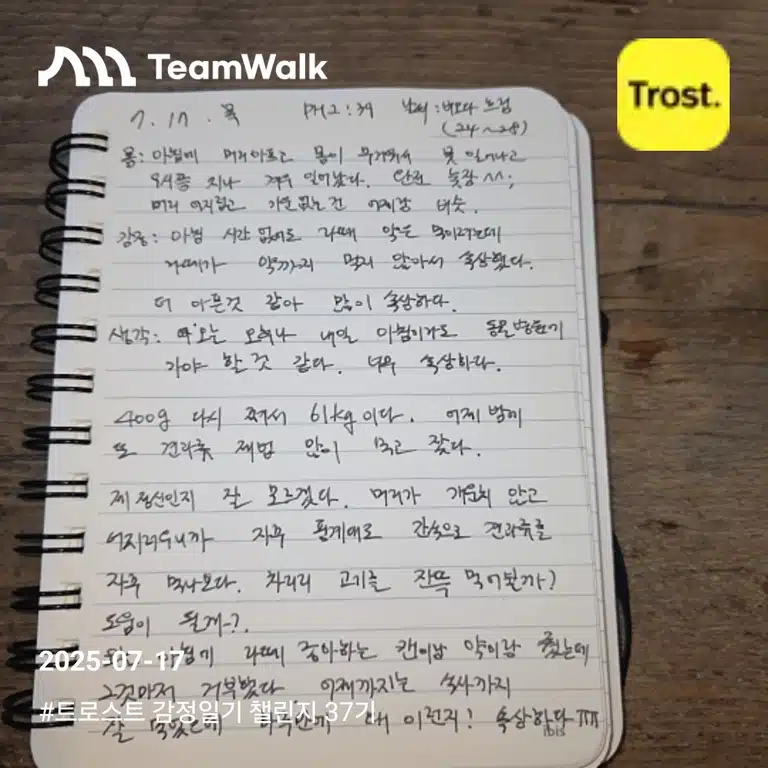 TeamWalk
Trost.
7. 17. 목 PM 2:39 날씨: 비오다 느낌
(24~28)
몸: 아침에 머리아프고 몸이 무거워서 못 일어나고
8시쯤 지나 겨우 일어났다. 완전 늦잠 ^^;
머리 어지럽고 기운없는건 어제랑 비슷.
감정: 아침 시간 없어도 라떼 약은 먹이려는데
라떼가 약까지 먹지 않아서 속상했다.
더 아픈것 같아 많이 속상하다.
생각: 오후나 내일 아침이라도 동물병원가
가야 할 것 같다. 너무 속상하다.
400g 다시 쪄서 61kg이다. 어제 밤에
또 견과류 제법 많이 먹고 잤다.
제정신인지 잘 모르겠다. 머리가 개운치 않고
어지러우니까 자꾸 핑계대로 간식으로 견과류를
자꾸 먹나보다. 차라리 고기를 잔뜩 먹어볼까?
도움이 될까~?.
라떼 좋아하는 캔이랑 약이랑 줬는데
그것마저 거부했다 어제까지는 식사까지
잘 먹었는데 왜 이런지! 속상하다 ㅠㅠ
2025-07-17
#트로스트 감정일기 챌린지 37기
ibis